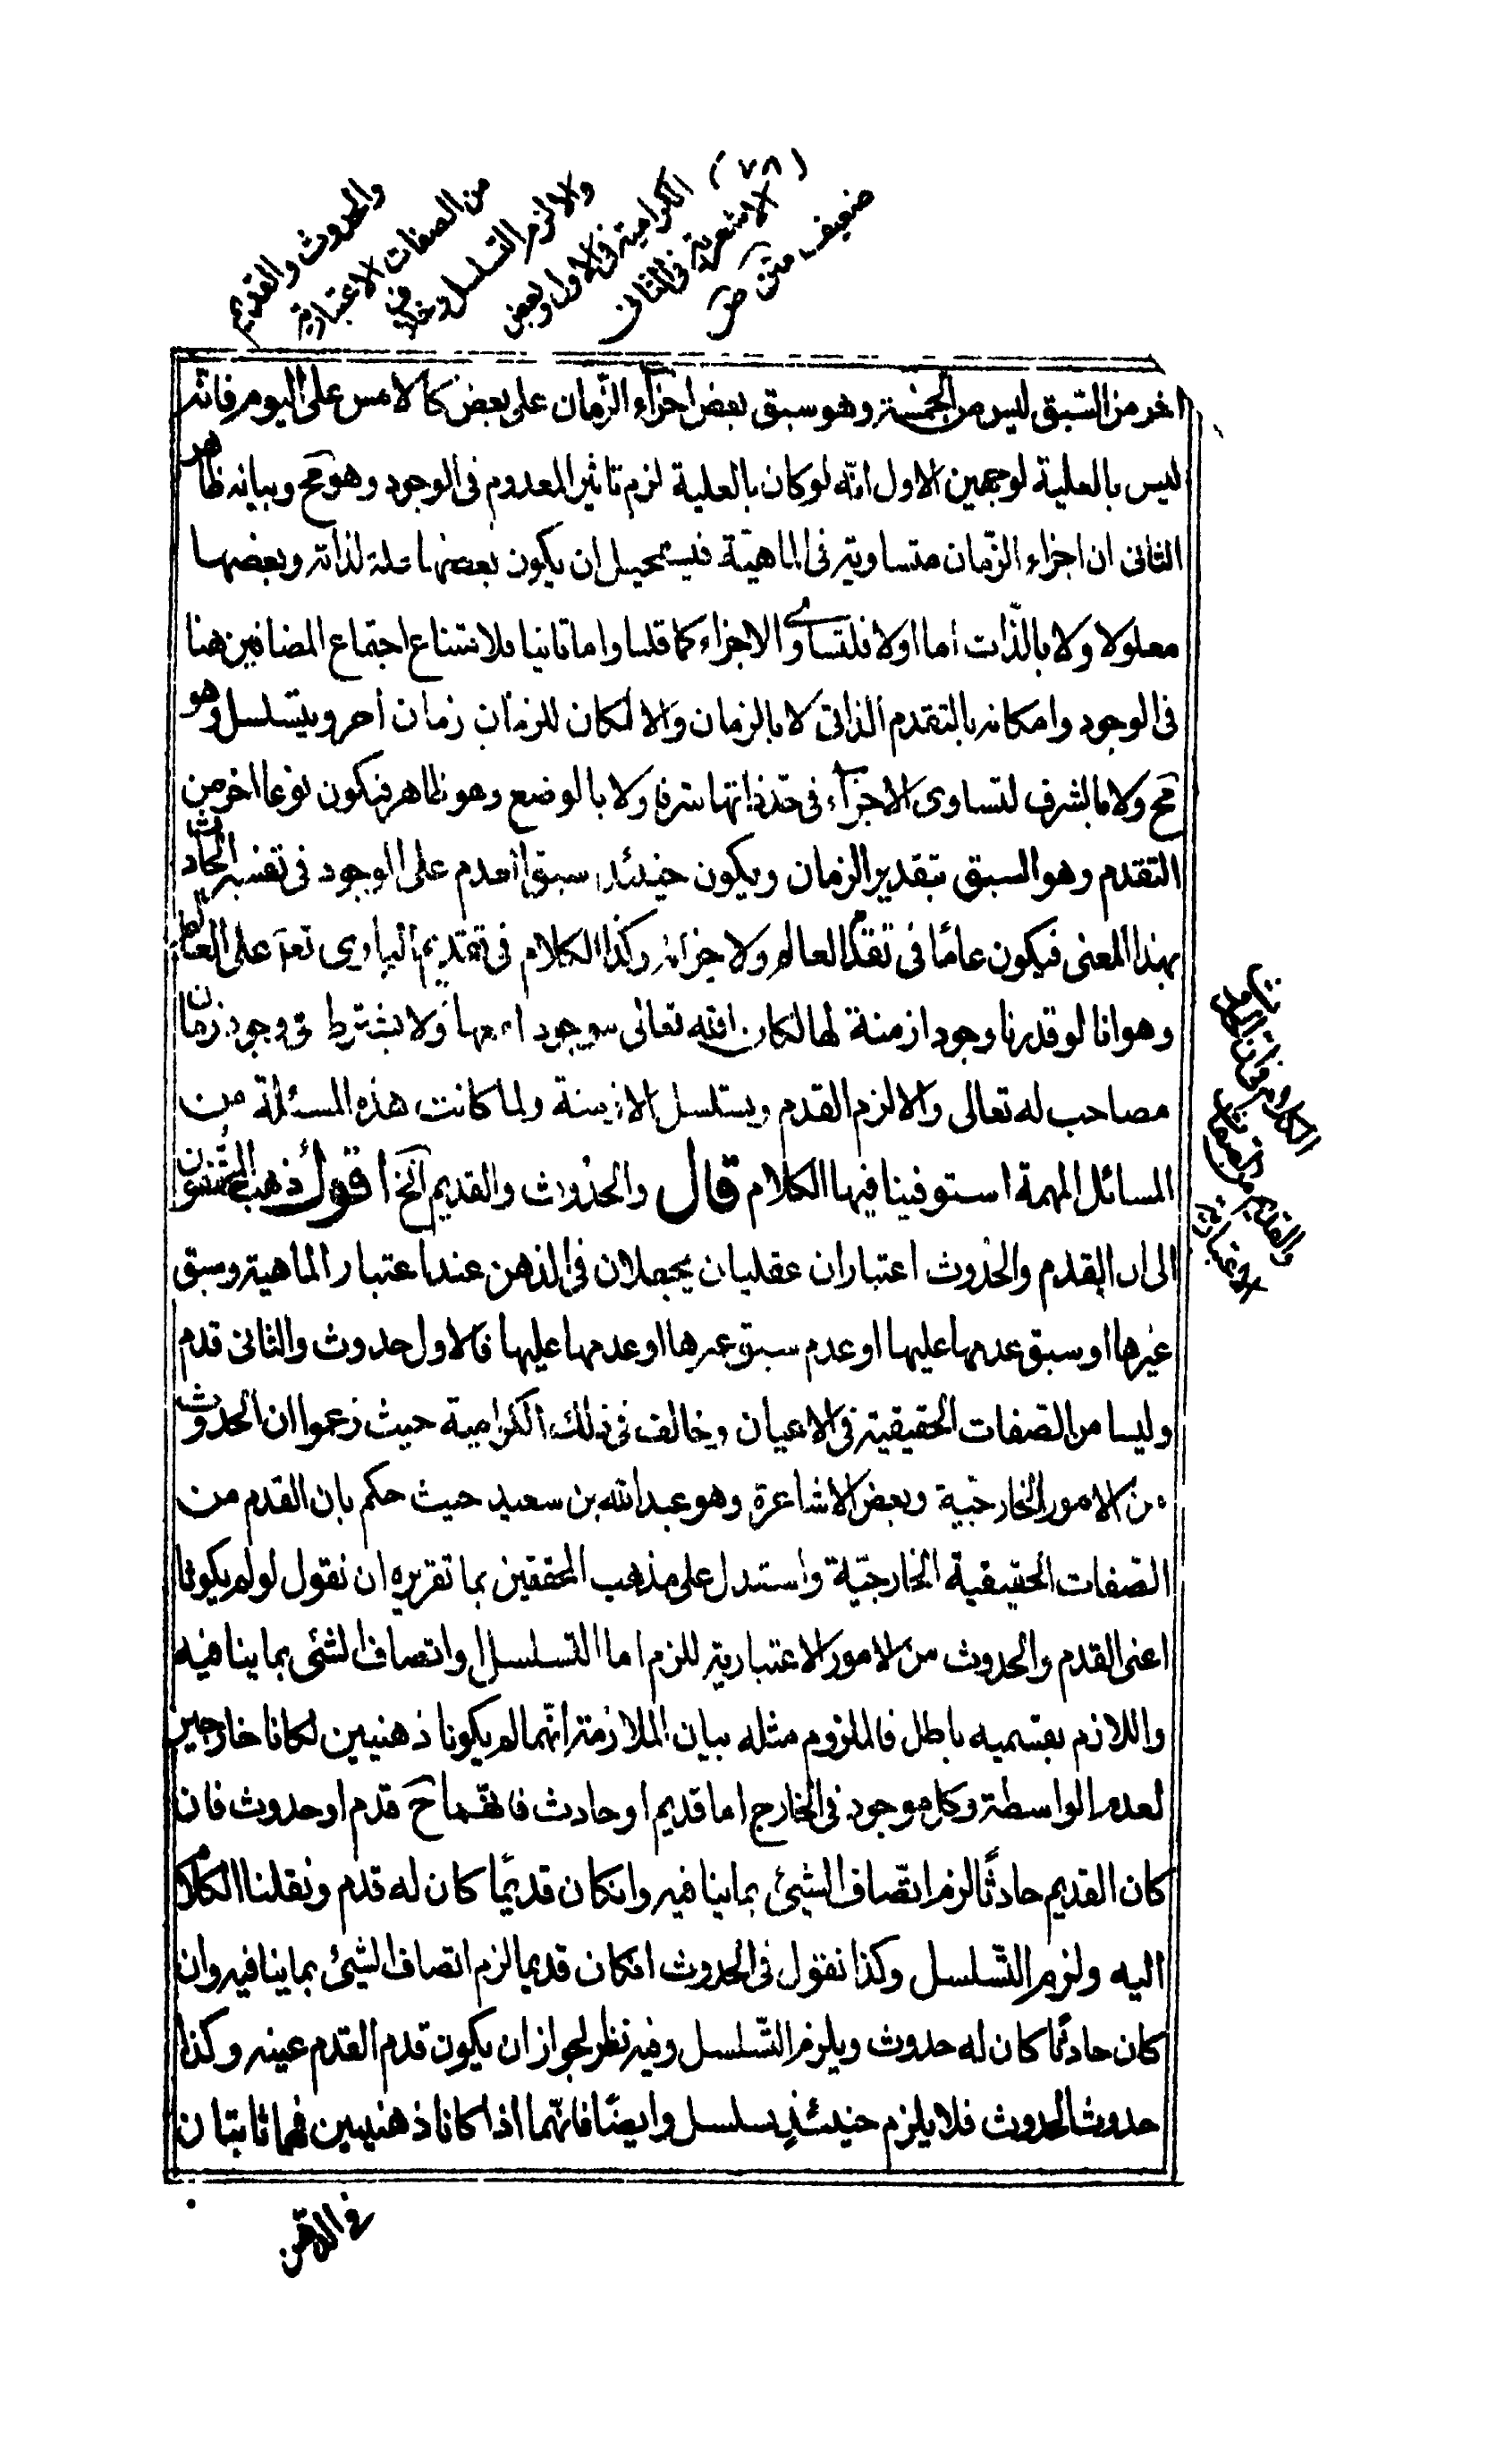 (٧٨)
والحدوث والقديم
من الصفات الاعتبارية
والا لزم التسلسل وخالف
الكرامية فى الاول وبعض
الاشعرية فى الثانى
ضعيف متن
اخر من السبق ليس من الخمسة وهو سبق بعض اجزآء الزّمان على بعض كالامس على اليوم فانّه
ليس بالعلية لوجهين الاول انّه لو كان بالعلية لزم تاثير المعدوم فى الوجود وهو مح وبيانه ظاهر
الثانى ان اجزاء الزّمان متساوية فى الماهيّة فيستحيل ان يكون بعضها علة لذاته وبعضها
معلولا ولا بالذّات اما اولا فلتساوى الاجزاء كما قلنا واما ثانيا فلامتناع اجتماع المضافين هنا
فى الوجود وامكانه بالتقدم الذاتى لا بالزمان والا لكان للزمان زمان اخر ويتسلسل وهو
مح ولا بالشرف لتساوى الاجزآء فى حدّ ذاتها شرفا ولا بالوضع وهو ظاهر فيكون نوعا اخر من
التقدم وهو السبق بتقدير الزمان ويكون حينئذ سبق العدم على الوجود فى تفسير الحادث
بهذا المعنى فيكون عامّا فى تقدم العالم ولاجزائه وكذا الكلام فى تقديم البارى تعـ على العالم
وهو انا لو قدرنا وجود ازمنة لها لكان الله تعالى موجود امعها ولا يشترط فى وجود زمان
مصاحب له تعالى والا لزم القدم ويستلسل الازمنة ولما كانت هذه المسئلة من
المسائل المهمة استوفينا فيها الكلام قال والحدوث والقديم الخ اقول ذهب المحققون
الى ان القدم والحدوث اعتباران عقليان يحصلان فى الذهن عند اعتبار الماهية وسبق
غيرها او سبق عدمها عليها او عدم سبق غيرها او عدمها عليها فالاول حدوث والثانى قدم
وليسا من الصّفات الحقيقية فى الاعيان وخالف فى ذلك الكرامية حيث زعموا ان الحدوث
من الامور الخارجيّة وبعض الاشاعرة وهو عبد الله بن سعيد حيث حكم بان القدم من
الصّفات الحقيقية الخارجيّة واستدل على مذهب المحققين بما تقريره ان نقول لو لم يكونا
اعنى القدم والحدوث من الامور الاعتبارية للزم اما التسلسل او اتصاف الشئ بما ينافيه
واللازم بقسميه باطل فالملزوم مثله بيان الملازمة انّهما لم يكونا ذهنيين لكانا خارجين
لعدم الواسطة وكل موجود فى الخارج اما قديم او حادث فانهما ح قدم او حدوث فان
كان القديم حادثًا لزم اتّصاف الشيئ بما ينافيه وانكان قديمًا كان له قدم ونقلنا الكلام
اليه ولزم التّسلسل وكذا نقول فى الحدوث انكان قديما لزم اتصاف الشيئ بما ينافيه وان
كان حادثًا كان له حدوث ويلزم التّسلسل وفيه نظر لجواز ان يكون قدم القدم عينه وكذا
حدوث الحدوث فلا يلزم حينئذٍ تسلسل وايضًا فانّهما اذا كانا ذهنيين فهما ثابتان
الكلام فى ان الحدوث
والقديم من الصفات
الاعتبارية
فى الذهن